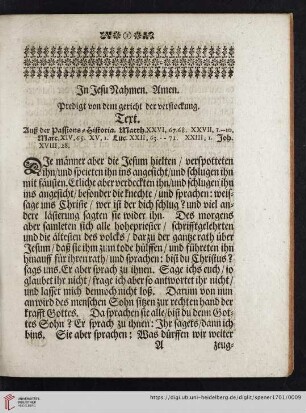 In Jesu Nahmen. Amen.
Predigt von dem gericht der verstockung.
Text.
Auß der Passions-Historia. Matth. XXVI, 67.68. XXVII, 1.--10,
Marc. XIV, 65. XV, 1. Luc. XXII, 63.--71. XXIII, 1. Joh.
XVIII, 28.
DIe männer aber die Jesum hielten / verspotteten
ihn/und speieten ihn ins angesicht/und schlugen ihn
mit fäusten. Etliche aber verdeckten ihn/und schlugen ihn
ins angesicht/ besonder die knechte / und sprachen: weissage
uns Christe / wer ist der dich schlug? und viel andere
lästerung sagten sie wider ihn. Des morgens
aber samleten sich alle hohepriester / schrifftgelehrten
und die ältesten des volcks / dar zu der gantze rath über
Jesum / daß sie ihn zum tode hülffen / und führeten ihn
hinauff für ihren rath / und sprachen: bist du Christus?
sags uns. Er aber sprach zu ihnen: Sage ichs euch / so
glaubet ihr nicht / frage ich aber so antwortet ihr nicht/
und lasset mich dennoch nicht loß. Darum von nun
an wird des menschen Sohn sitzen zur rechten hand der
krafft Gottes. Da sprachen sie alle/ bist du denn Gottes
Sohn? Er sprach zu ihnen: Ihr sagets/dann ich
bins. Sie aber sprachen: Was dürffen wir weiter
A zeug-
https://digi.ub.uni-heidelberg.de/diglit/spener1701/0009